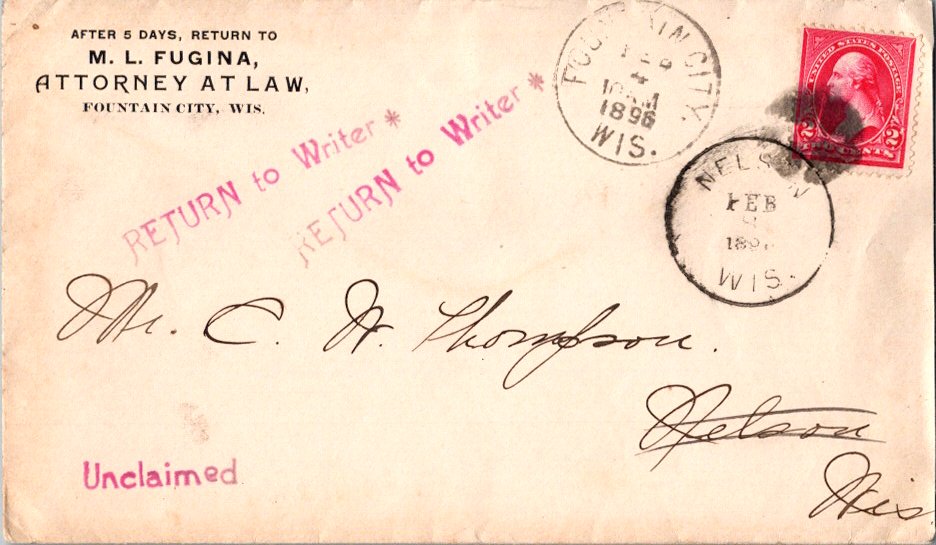 AFTER 5 DAYS, RETURN TO
M. L. FUGINA,
ATTORNEY AT LAW,
FOUNTAIN CITY, WIS.
RETURN to Writer *
RETURN to Writer *
FOUNTAIN CITY.
FEB
4
10 AM
1896
WIS.
UNITED STATES POSTAGE
2 2
NELSON
FEB
189
WIS.
Mr. C. W. Thompson.
Nelson
Wis
Unclaimed